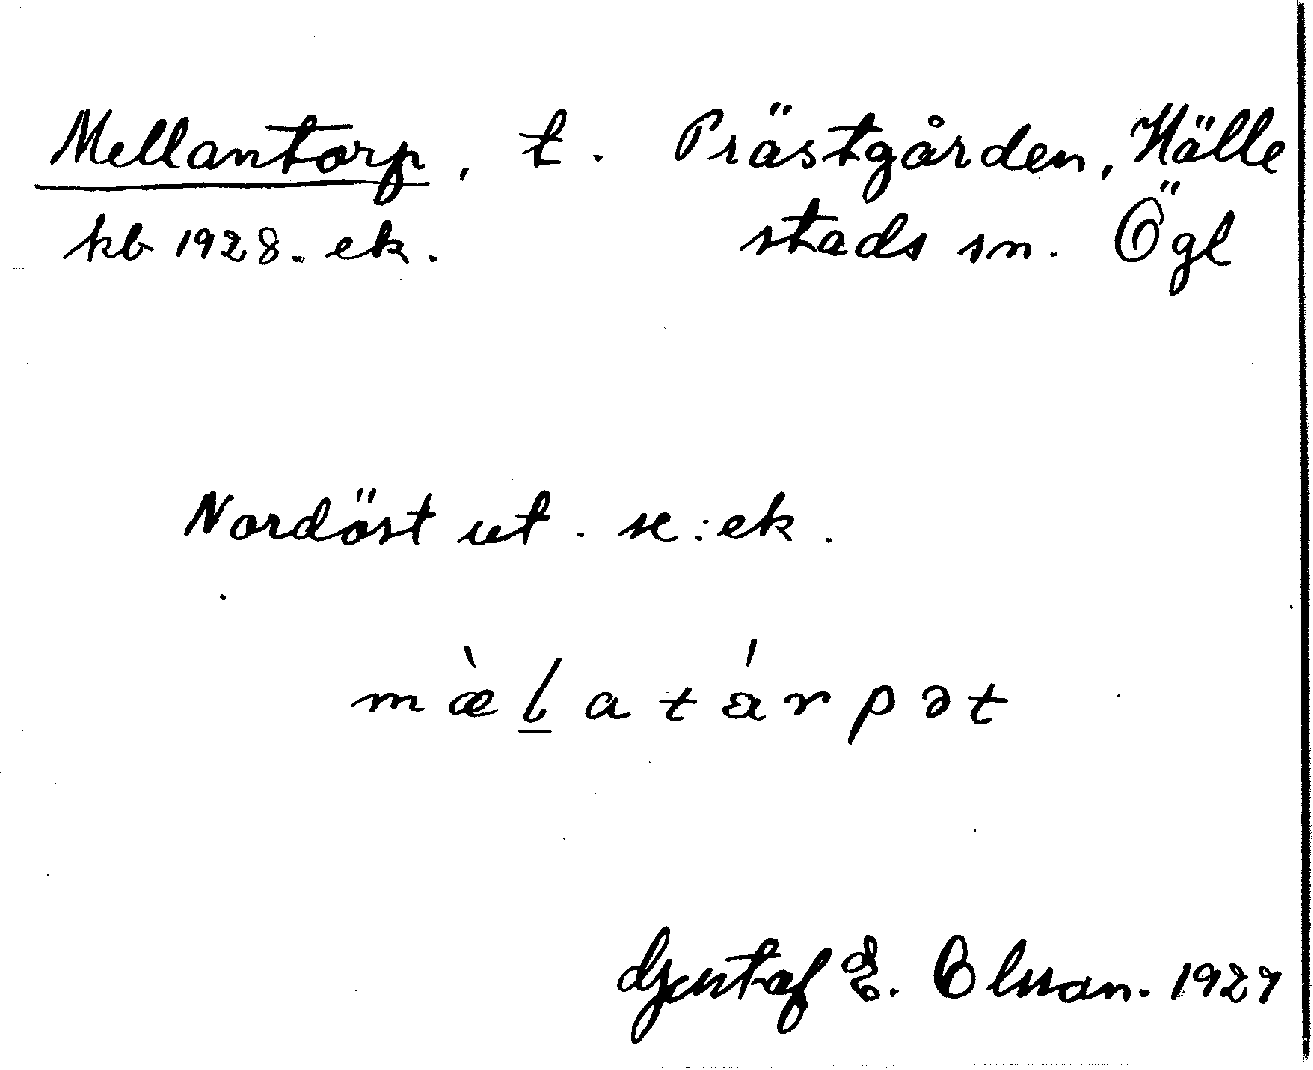 Mellantorp, t. Prästgården, Hälle
kb 1928. ek. stads sn. Ögl
Nordöst ut. se: ek.
mæ̀l̲atárpət
Gustaf E. Olsson. 1927